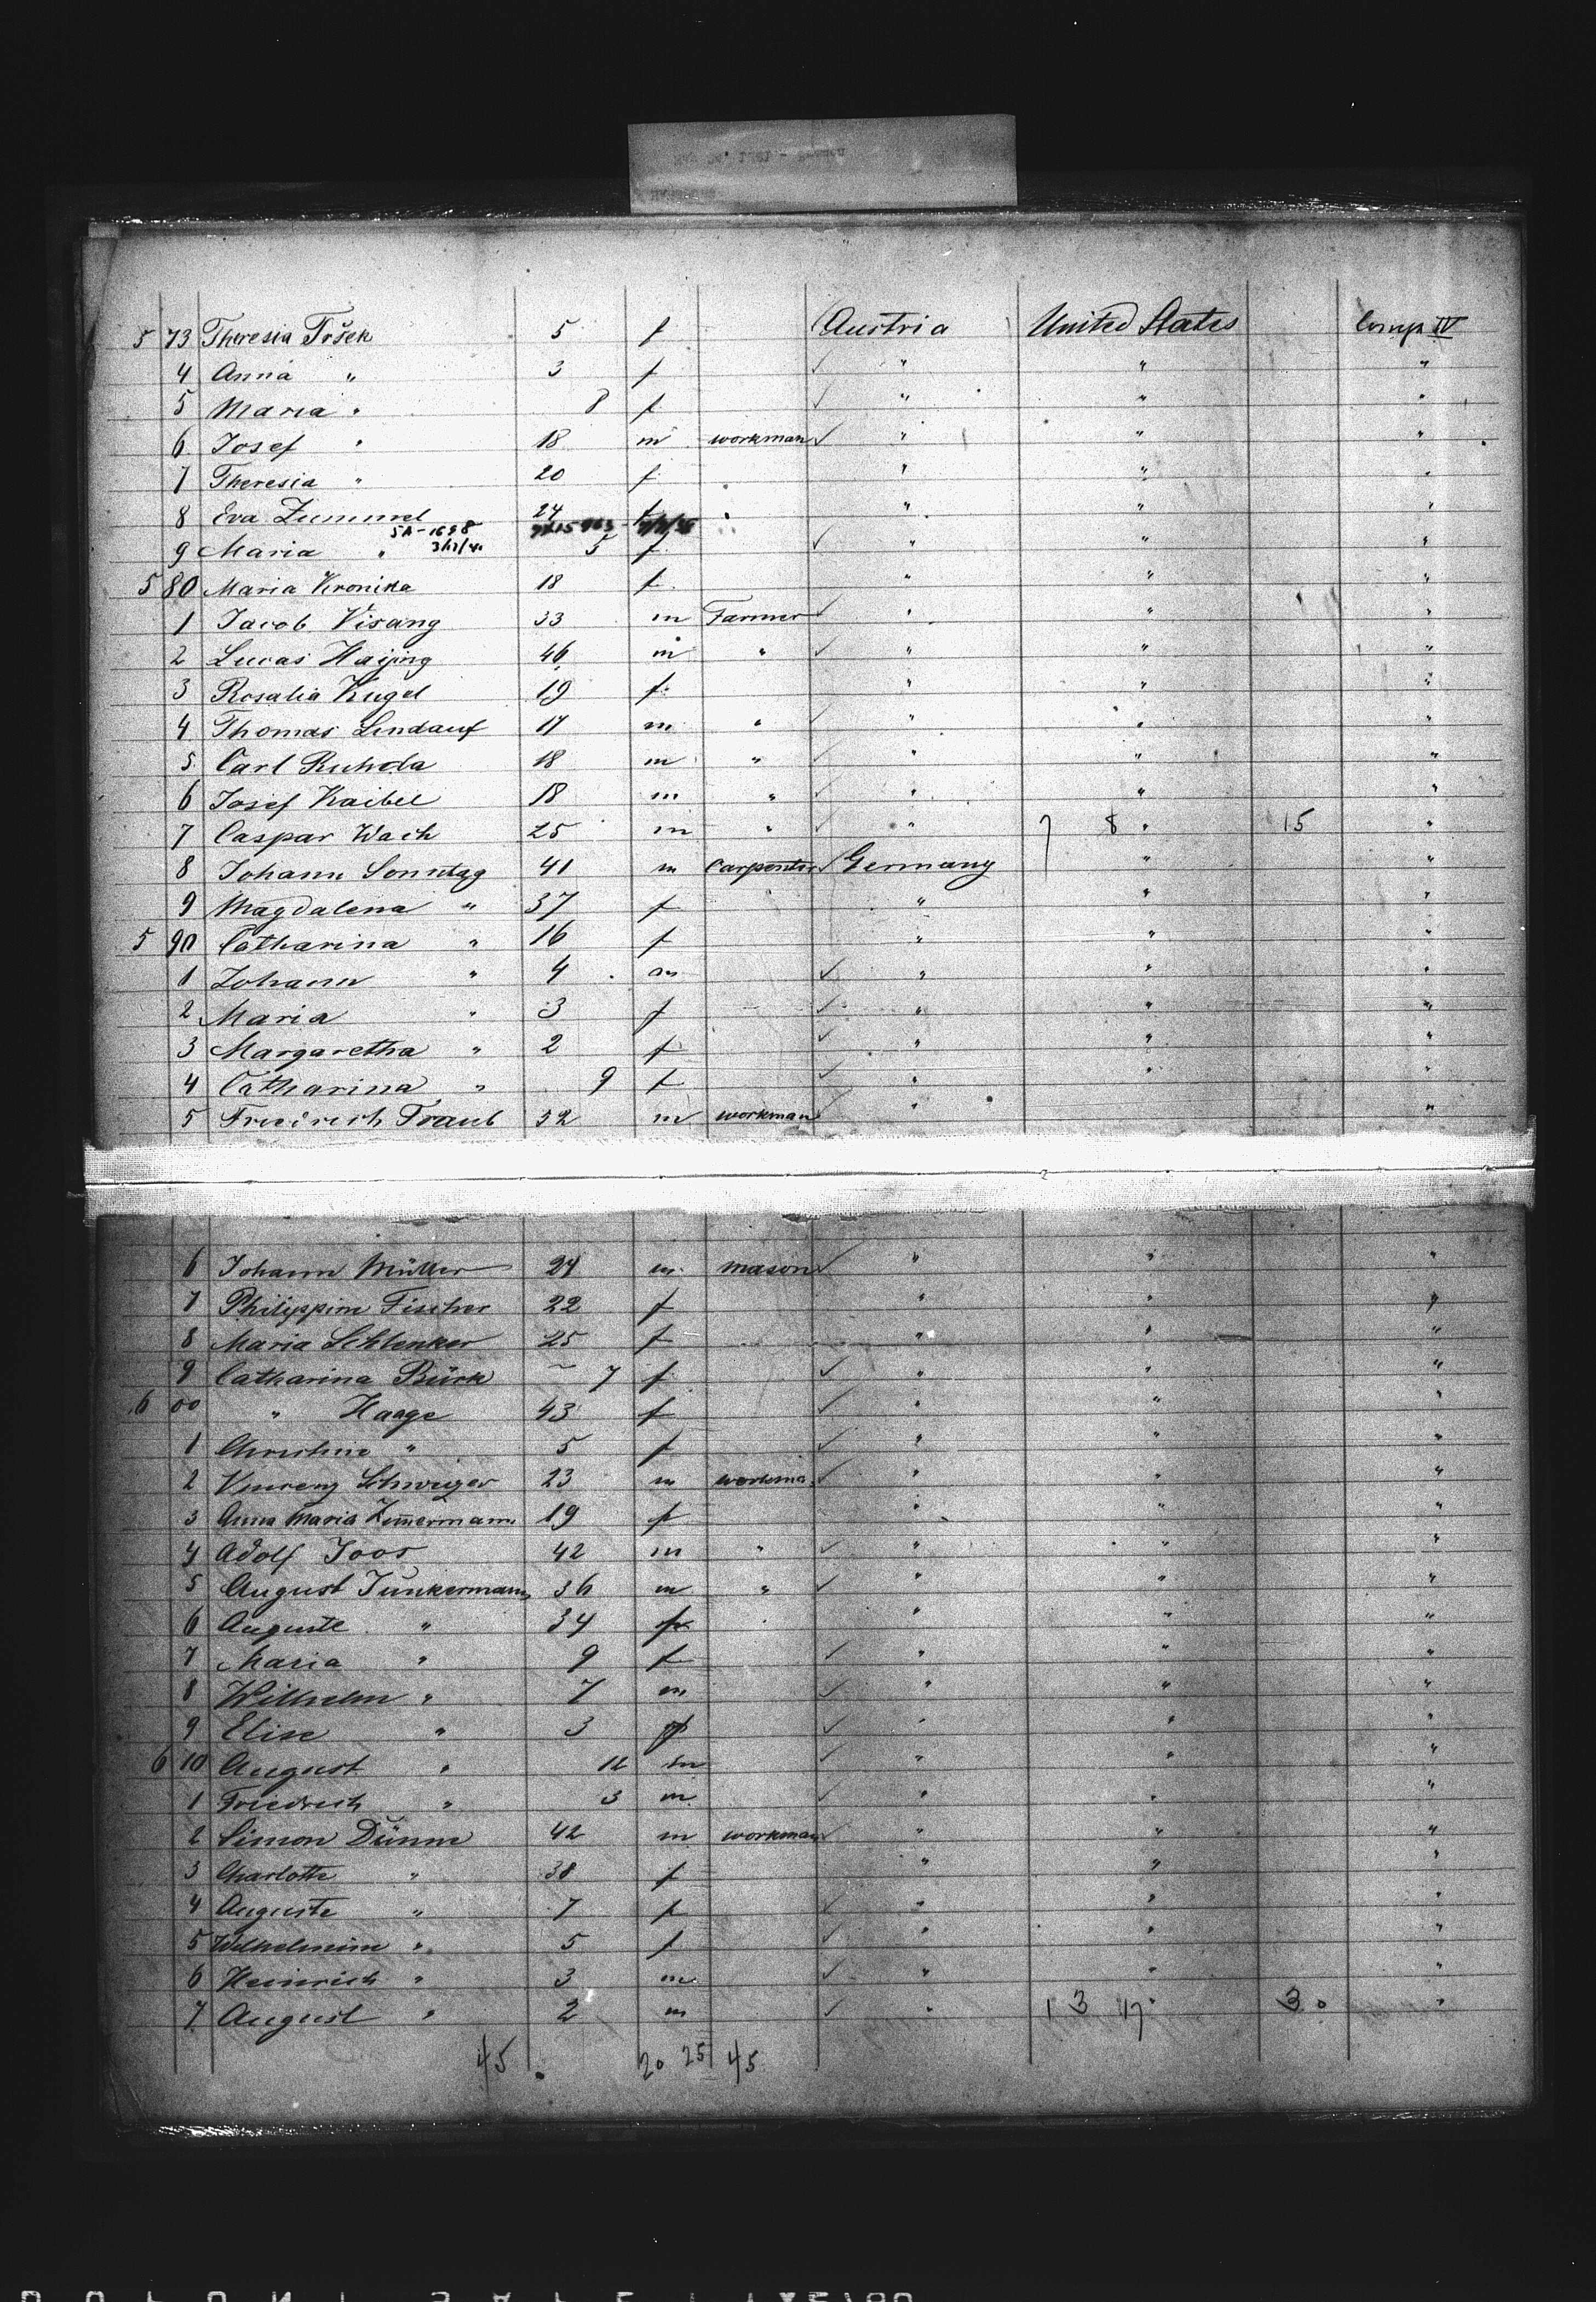 5 73 Theresia Tošek 5 f Austria United States Comp IV
4 Anna " 3 f ✓ " " "
5 Maria " 8 f ✓ " " "
6 Josef " 18 m workman ✓ " " "
7 Theresia " 20 f " " "
8 Eva Zummel 24 f " " "
5A-1698
9 Maria " 5 f ✓ " " "
5 80 Maria Kronika 18 f " " "
1 Jacob Visang 33 m Farmer ✓ " " "
2 Lucas 46 m " ✓ " " "
3 Rosalia Kugel 19 f " " "
4 Thomas Lindauf 17 m " ✓ " " "
5 Carl Ruhda 18 m " ✓ " " "
6 Josef Kaibel 18 m " ✓ " " "
7 Caspar Wach 25 m " ✓ " 7 8 " 15 "
8 Johann Sonntag 41 m Carpenter ✓ Germany " "
9 Magdalena " 37 f " " "
5 90 Catharina " 16 f " " "
1 Johann " 4 m ✓ " " "
2 Maria " 3 f ✓ " " "
3 Margaretha " 2 f ✓ " " "
4 Catharina " 9 f ✓ " " "
5 Friedrich Traub 32 m workman ✓ " "
6 Johann Müller 24 m mason ✓ " " "
7 Philippine Fischer 22 f " " "
8 Maria Schlenker 25 f " " "
9 Catharina Bürk ~ 7 f ✓ " " "
6 00 " Haage 43 f ✓ " " "
1 Christine " 5 f ✓ " " "
2 23 m ✓ " " "
3 Anna Maria Zimmermann 19 f " " "
4 Adolf Joos 42 m " ✓ " " "
5 August Junkermann 36 m " ✓ " " "
6 Auguste " 34 f " " "
7 Maria " 9 f ✓ " " "
8 Wilhelm " 7 m ✓ " " "
9 Elise " 3 f ✓ " " "
6 10 August " m ✓ " " "
1 Friedrich " 3 m ✓ " " "
2 Simon Dünm 42 m workman ✓ " " "
3 Charlotte " 38 f " " "
4 Auguste " 7 f ✓ " " "
5 Wilhelmine " 5 f ✓ " " "
6 Heinrich " 3 m ✓ " " "
7 August " 2 m ✓ " 13 17 " 30 "
45 20 25 45